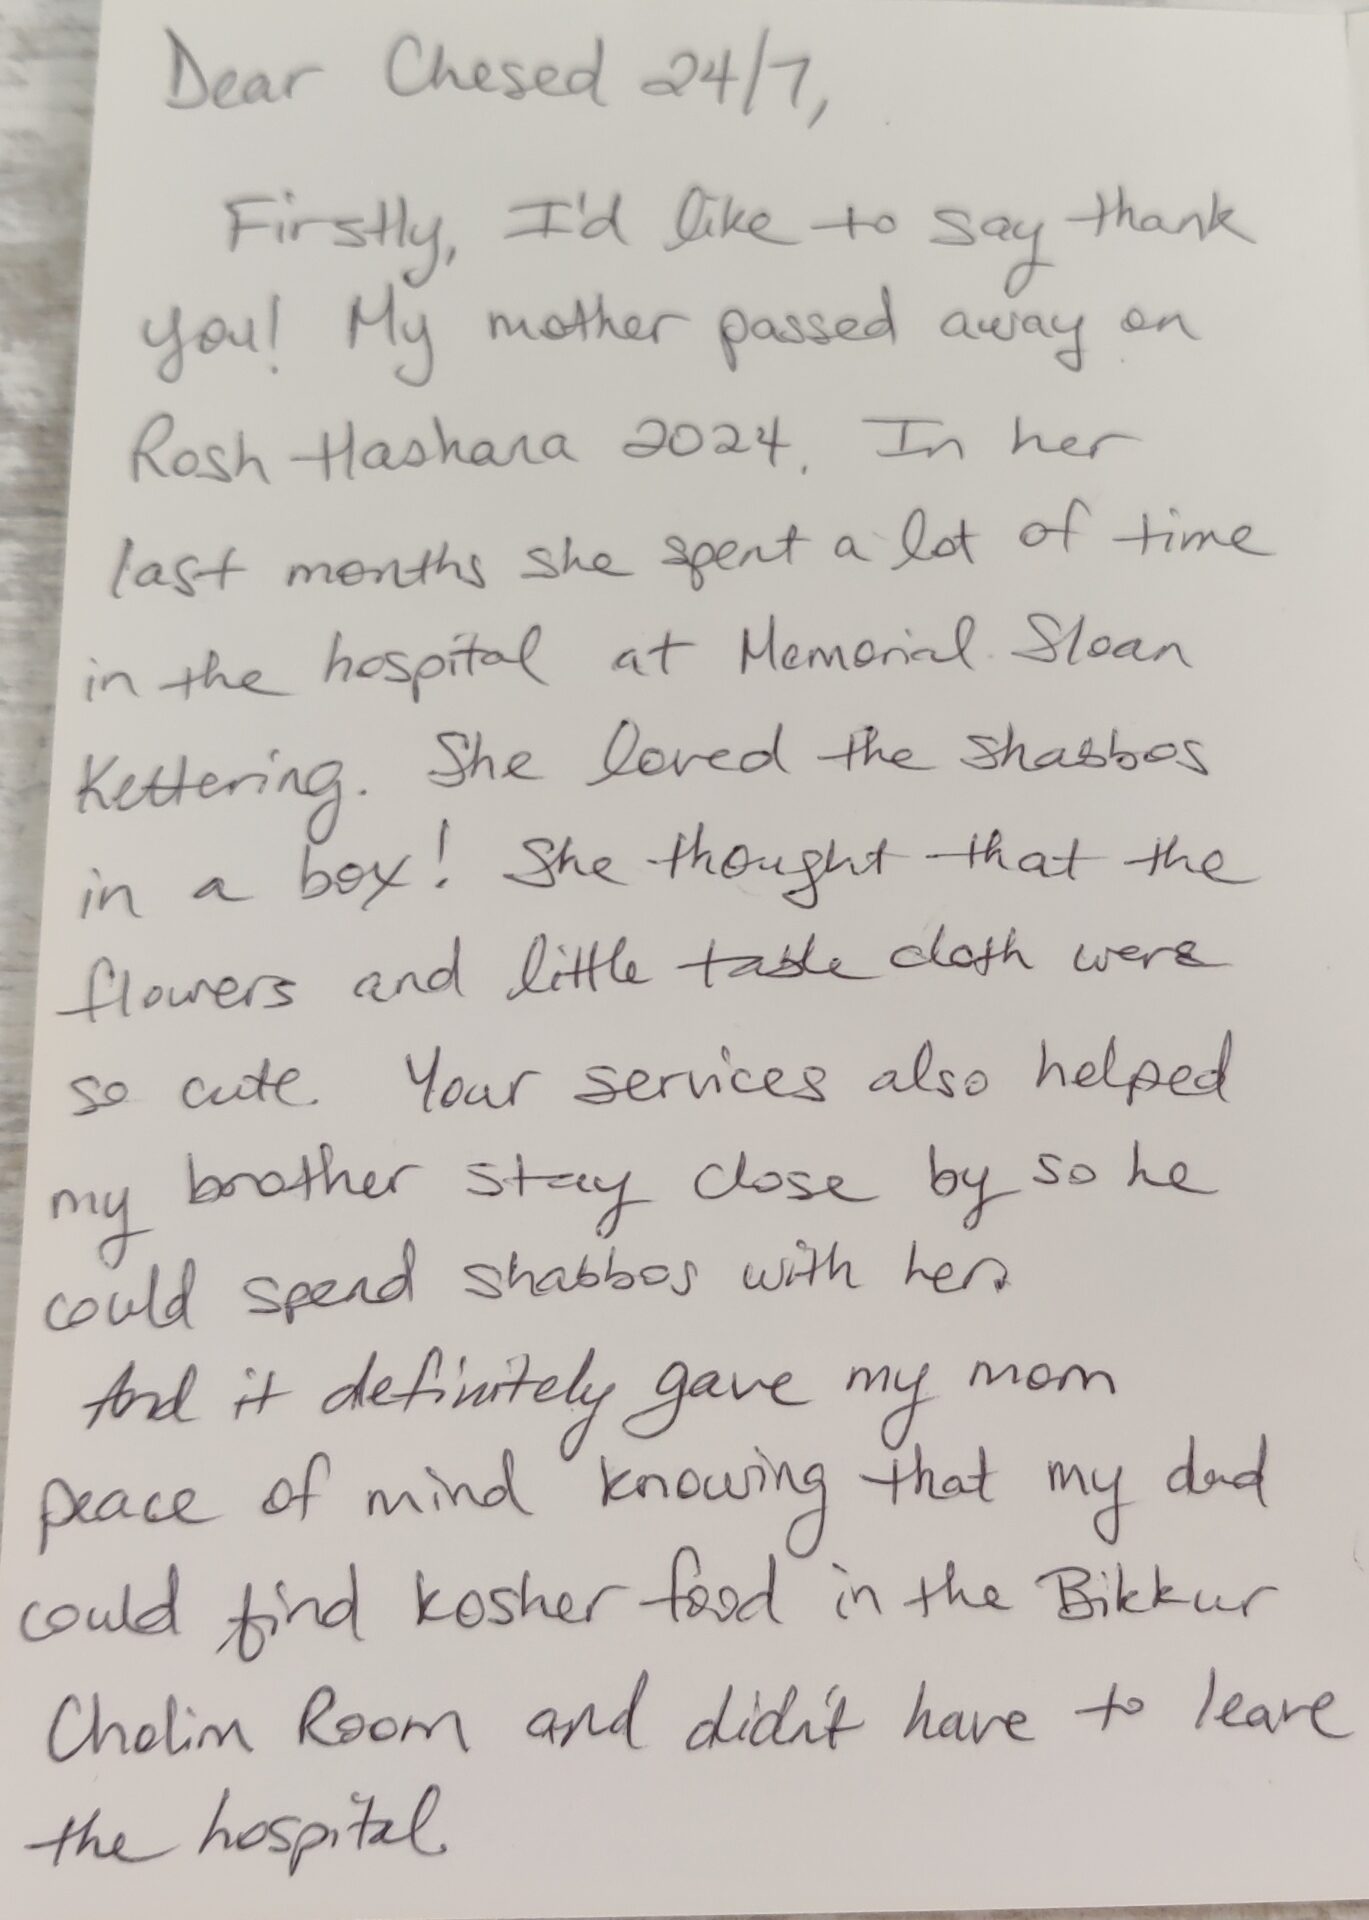 Dear Chesed 24/7,
Firstly, I'd like to say thank
you! My mother passed away on
Rosh Hashana 2024. In her
last months she spent a lot of time
in the hospital at Memorial Sloan
Kettering. She loved the shabbos
in a box! She thought that the
flowers and little table cloth were
so cute. Your services also helped
my brother stay close by so he
could spend shabbos with her.
And it definitely gave my mom
peace of mind knowing that my dad
could find kosher food in the Bikkur
Cholim Room and didn't have to leave
the hospital.